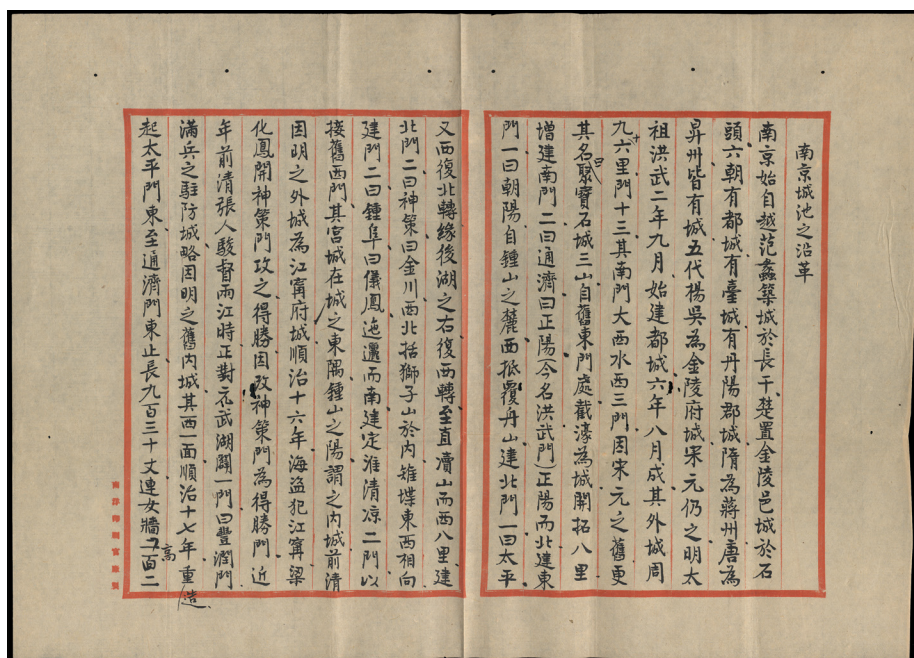 南京城池之沿革
南京始自越范蠡築城於長干楚置金陵邑城於石
頭六朝有都城有臺城有丹陽郡城隋為蔣州唐為
昇州皆有城五代楊吳為金陵府城宋元仍之明太
祖洪武二年九月始建都城六年八月成其外城周
九十六里門十三其南門大西水西三門因宋元之舊更
其名曰聚寶石城三山自舊東門處截濠為城開拓八里
增建南門二曰通濟曰正陽(今名洪武門)正陽而北建東
門一曰朝陽自鍾山之麓西抵覆舟山建北門一曰太平
又西復北轉緣後湖之右復西轉至直瀆山而西八里建
北門二曰神策曰金川西北括獅子山於內雉堞東西相向
建門二曰鍾阜曰儀鳳迤邐而南建定淮清涼二門以
接舊西門其宮城在城之東隅鍾山之陽謂之內城前清
因明之外城為江甯府城順治十六年海盜犯江甯梁
化鳳開神策門攻之得勝因改神策門為得勝門近
年前清張人駿督兩江時正對元武湖闢一門曰豐潤門
滿兵之駐防城略因明之舊內城其西一面順治十七年重造
起太平門東至通濟門東止長九百三十丈連女牆高二